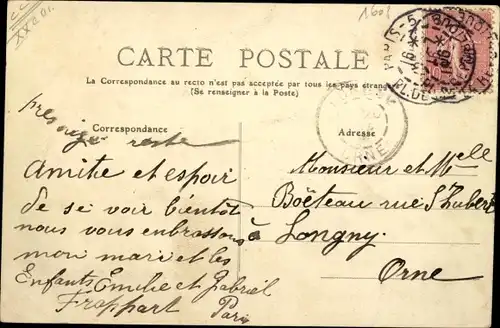 1601
CARTE POSTALE
La Correspondance au recto n'est pas acceptée par tous les pays étrangers
(Se renseigner à la Poste)
Correspondance
Adresse
reste
Amitie et espoir
de se voir bientôt
nous vous embrassons
mon mari et les
Enfants Emilie et Gabriel
Froppart Paris
Monsieur et Melle
Boëteau rue St Hubert
à Longny
Orne
ORNE